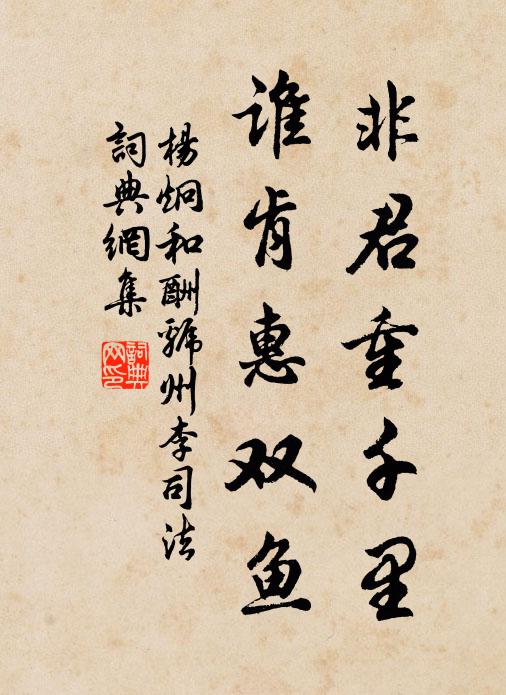 非君重千里
谁肯惠双鱼
楊炯和酬虢州李司法
詞典網集
詞典
网印